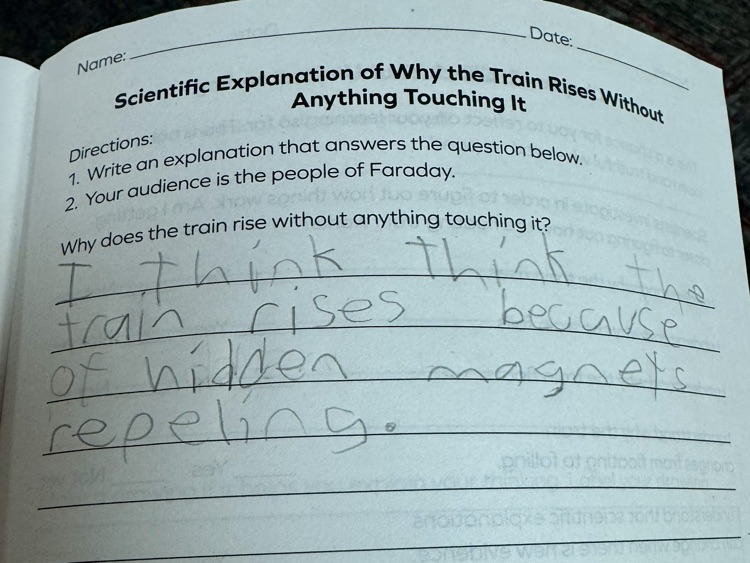 Name:
Date:
Scientific Explanation of Why the Train Rises Without
Anything Touching It
Directions:
1. Write an explanation that answers the question below.
2. Your audience is the people of Faraday.
Why does the train rise without anything touching it?
I think think the
train rises because
of hidden magnets
repeling.